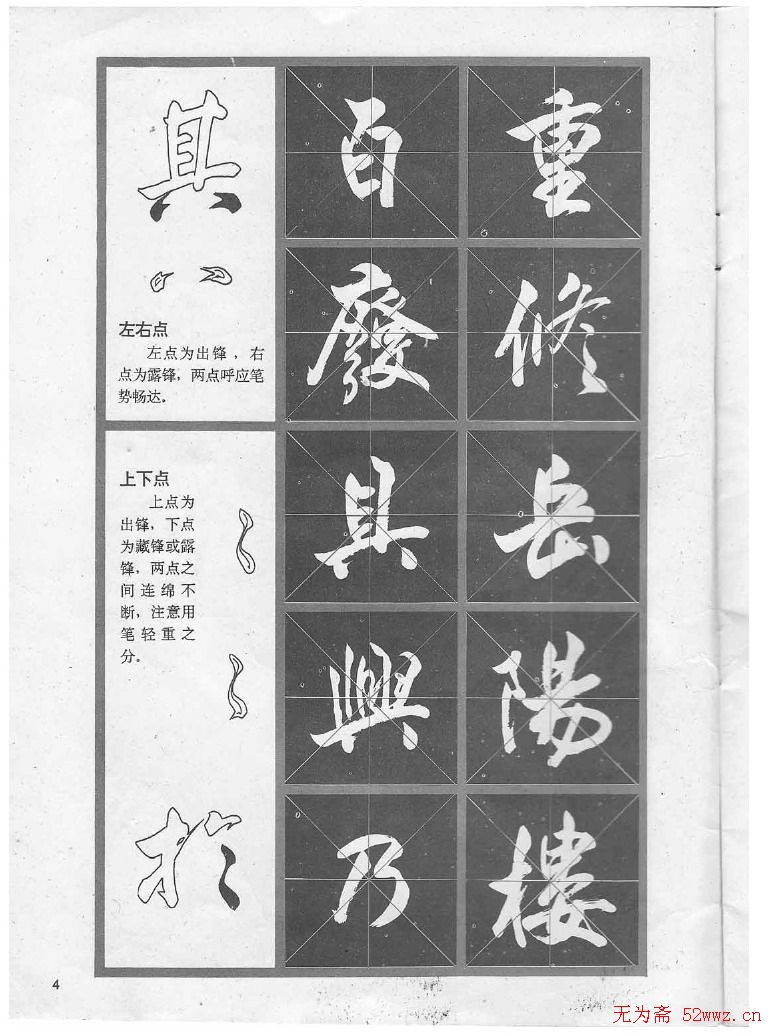 其
左右点
左点为出锋，右
点为露锋，两点呼应笔
势畅达。
上下点
上点为
出锋，下点
为藏锋或露
锋，两点之
间连绵不
断，注意用
笔轻重之
分。
於
百廢具興乃
重修岳陽樓
4
无为斋 52wwz.cn